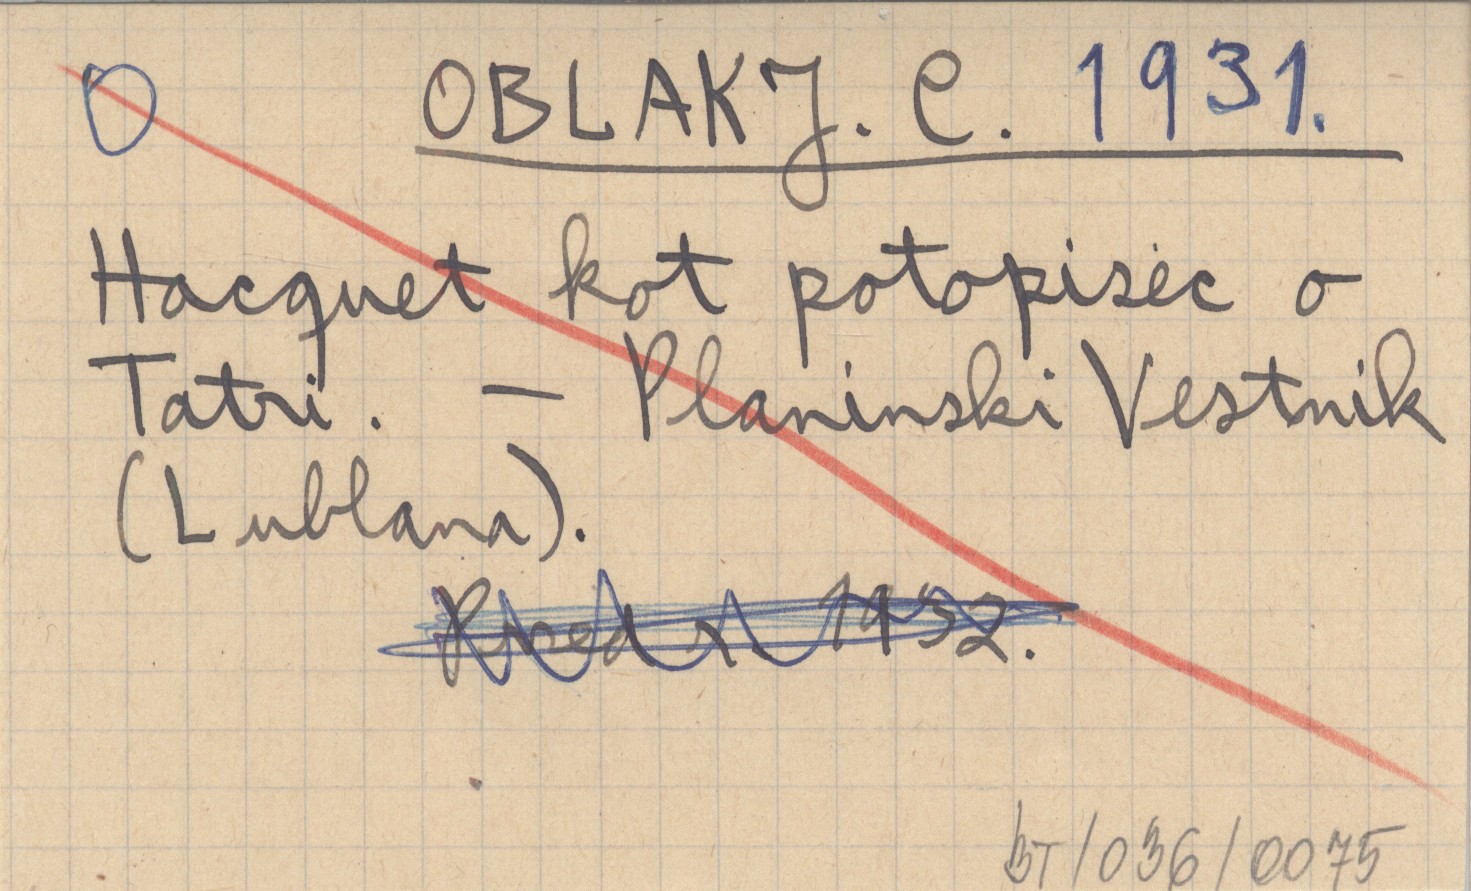 O OBLAK J. C. 1931.
Hacquet kot potopisec o
Tatri. — Planinski Vestnik
(Lublana).
Przed r. 1932.
BT/036/0075